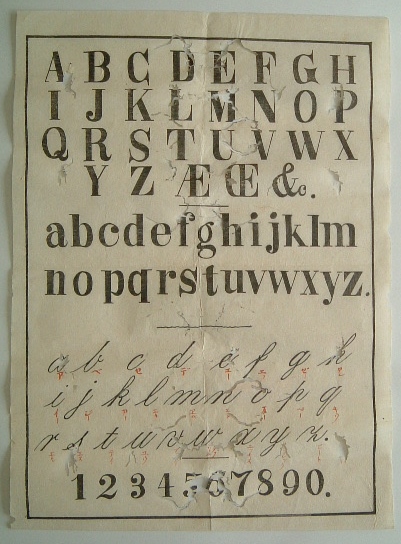 A B C D E F G H
I J K L M N O P
Q R S T U V W X
Y Z Æ Œ &c.
abcdefghijklm
nopqrstuvwxyz.
a b c d e f g h
i j k l m n o p q
r s t u v w x y z.
1234567890.